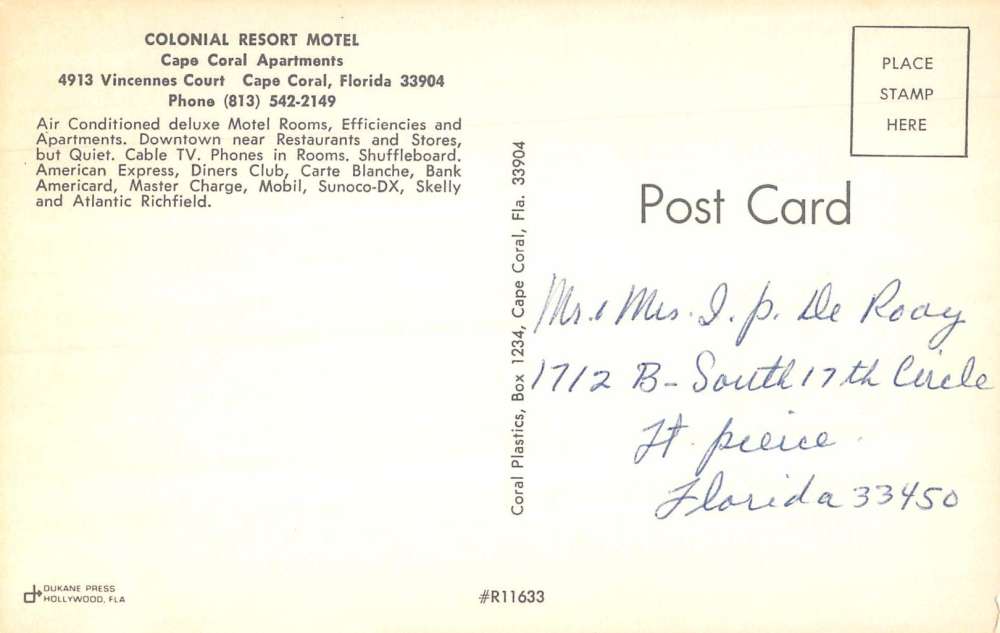 COLONIAL RESORT MOTEL
Cape Coral Apartments
4913 Vincennes Court Cape Coral, Florida 33904
Phone (813) 542-2149
Air Conditioned deluxe Motel Rooms, Efficiencies and
Apartments. Downtown near Restaurants and Stores,
but Quiet. Cable TV. Phones in Rooms. Shuffleboard.
American Express, Diners Club, Carte Blanche, Bank
Americard, Master Charge, Mobil, Sunoco-DX, Skelly
and Atlantic Richfield.
DUKANE PRESS
HOLLYWOOD, FLA
Coral Plastics, Box 1234, Cape Coral, Fla. 33904
#R11633
PLACE
STAMP
HERE
Post Card
Mr. & Mrs. I. p. De Rooy
1712 B- South 17th Circle
Ft. pierce
Florida 33450